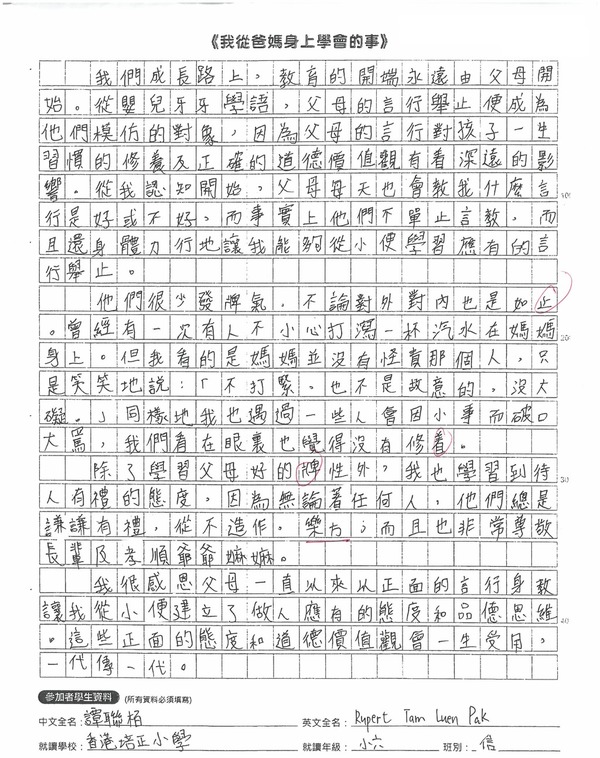 《我從爸媽身上學會的事》
我們成長路上，教育的開端永遠由父母開
始。從嬰兒牙牙學語，父母的言行舉止便成為
他們模仿的對象，因為父母的言行對孩子一生
習慣的修養及正確的道德價值觀有着深遠的影
響。從我認知開始，父母每天也會教我什麼言
行是好或不好，而事實上他們不單止言教，而
且還身體力行地讓我能夠從小便學習應有的言
行舉止。
他們很少發牌氣，不論對外對內也是如止
。曾經有一次有人不小心打瀉一杯汽水在媽媽
身上。但我看的是媽媽並沒有怪責那個人，只
是笑笑地說：「不打緊，也不是故意的，沒大
礙。」同樣地我也遇過一些人會因小事而破口
大罵，我們看在眼裏也覺得沒有修着。
除了學習父母好的牌性外，我也學習到待
人有禮的態度，因為無論着任何人，他們總是
謙謙有禮，從不造作。樂方；而且也非常尊敬
長輩及孝順爺爺嫲嫲。
我很感恩父母一直以來以正面的言行身教
讓我從小便建立了做人應有的態度和品德思維
。這些正面的態度和道德價值觀會一生受用，
一代傳一代。
10
20
30
40
參加者學生資料 (所有資料必須填寫)
中文全名：譚聯栢 英文全名：Rupert Tam Luen Pak
就讀學校：香港培正小學 就讀年級：小六 班別：信